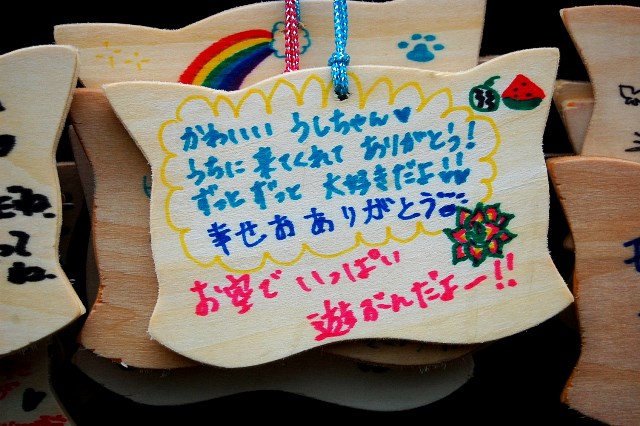 かわいい うしちゃん♥
うちに来てくれて ありがとう！
ずっとずっと 大好きだよ!!
幸せお ありがとう
お空で いっぱい
遊ぶんだよー!!